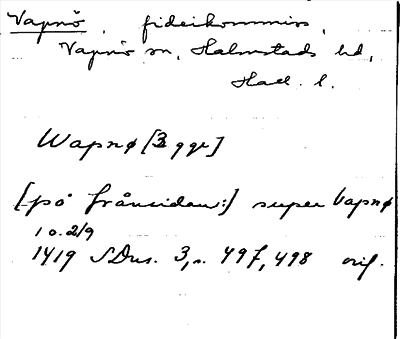 Vapnö, fideikommiss,
Vapnö sn, Halmstads hd,
Hall. l.
Wapnø [3 ggr]
[på frånsidan:] super Vapnø
10. 2/9
1419 SDns. 3, s. 497, 498 orig.